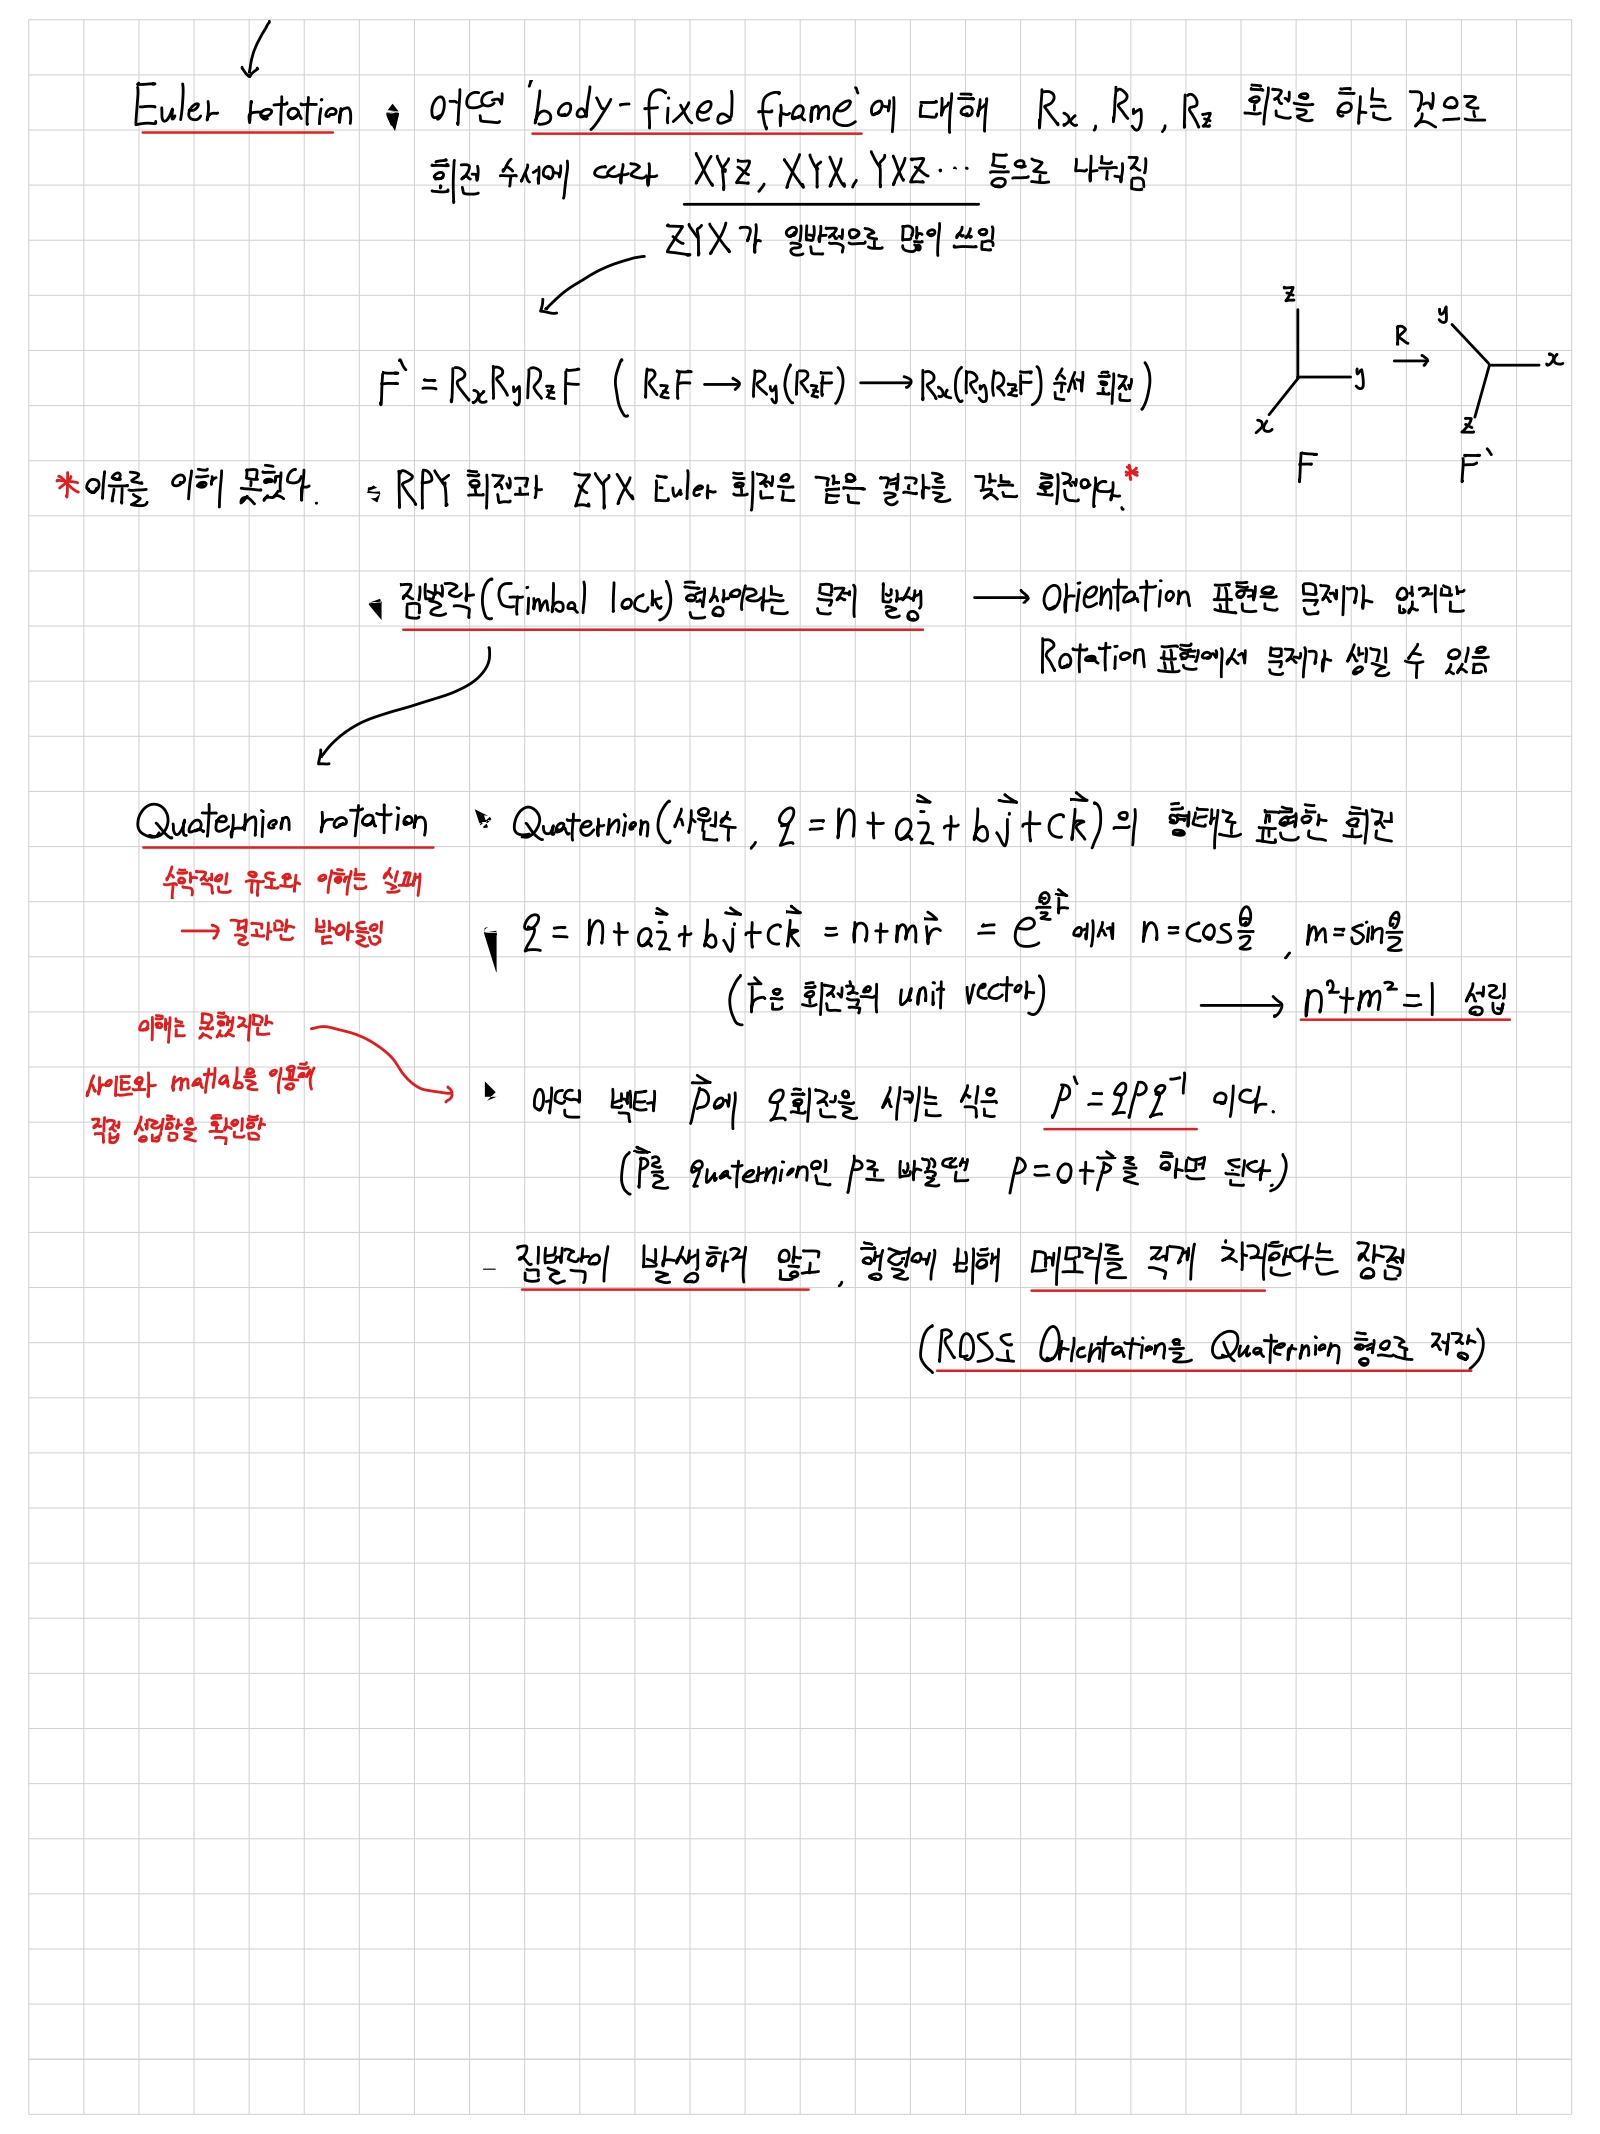 Euler rotation - 어떤 'body-fixed frame'에 대해 Rx, Ry, Rz 회전을 하는 것으로
회전 수서에 따라 XYZ, XYX, YXZ... 등으로 나눠짐
ZYX가 일반적으로 많이 쓰임
F' = RxRyRzF ( RzF → Ry(RzF) → Rx(RyRzF) 순서 회전)
z
y
x
F
R →
y
x
z
F'
*이유를 이해 못했다. - RPY 회전과 ZYX Euler 회전은 같은 결과를 갖는 회전이다.*
- 짐벌락(Gimbal lock) 현상이라는 문제 발생 → Orientation 표현은 문제가 없지만
Rotation 표현에서 문제가 생길 수 있음
Quaternion rotation - Quaternion(사원수, q = n + ai⃗ + bj⃗ + ck⃗)의 형태로 표현한 회전
수학적인 유도와 이해는 실패
→ 결과만 받아들임
- q = n + ai⃗ + bj⃗ + ck⃗ = n + mr⃗ = e^(θ/2 r⃗) 에서 n = cos θ/2, m = sin θ/2
(r⃗은 회전축의 unit vector) → n²+m²=1 성립
이해는 못했지만
사이트와 matlab을 이용해
직접 성립함을 확인함
- 어떤 벡터 p⃗에 q회전을 시키는 식은 p' = qpq⁻¹ 이다.
(p⃗를 quaternion인 p로 바꿀땐 p = 0 + p⃗ 를 하면 된다.)
- 짐벌락이 발생하지 않고, 행렬에 비해 메모리를 적게 차지한다는 장점
(ROS도 Orientation을 Quaternion 형으로 저장)